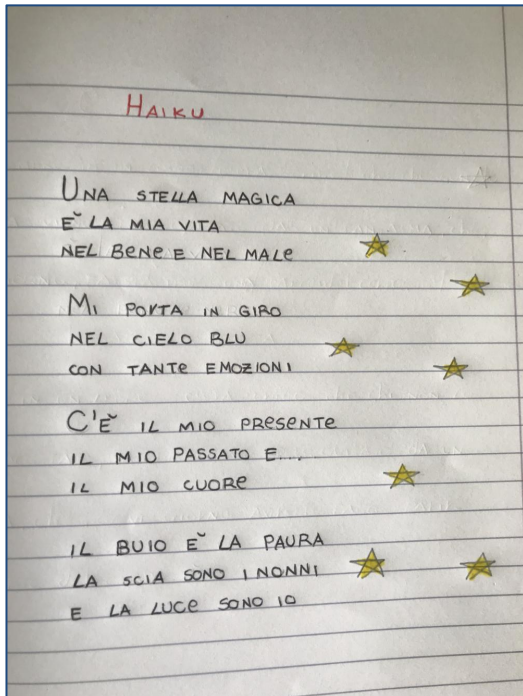 HAIKU
UNA STELLA MAGICA
E˘ LA MIA VITA
NEL BENE E NEL MALE
MI PORTA IN GIRO
NEL CIELO BLU
CON TANTE EMOZIONI
C'E˘ IL MIO PRESENTE
IL MIO PASSATO E...
IL MIO CUORE
IL BUIO E˘ LA PAURA
LA SCIA SONO I NONNI
E LA LUCE SONO IO